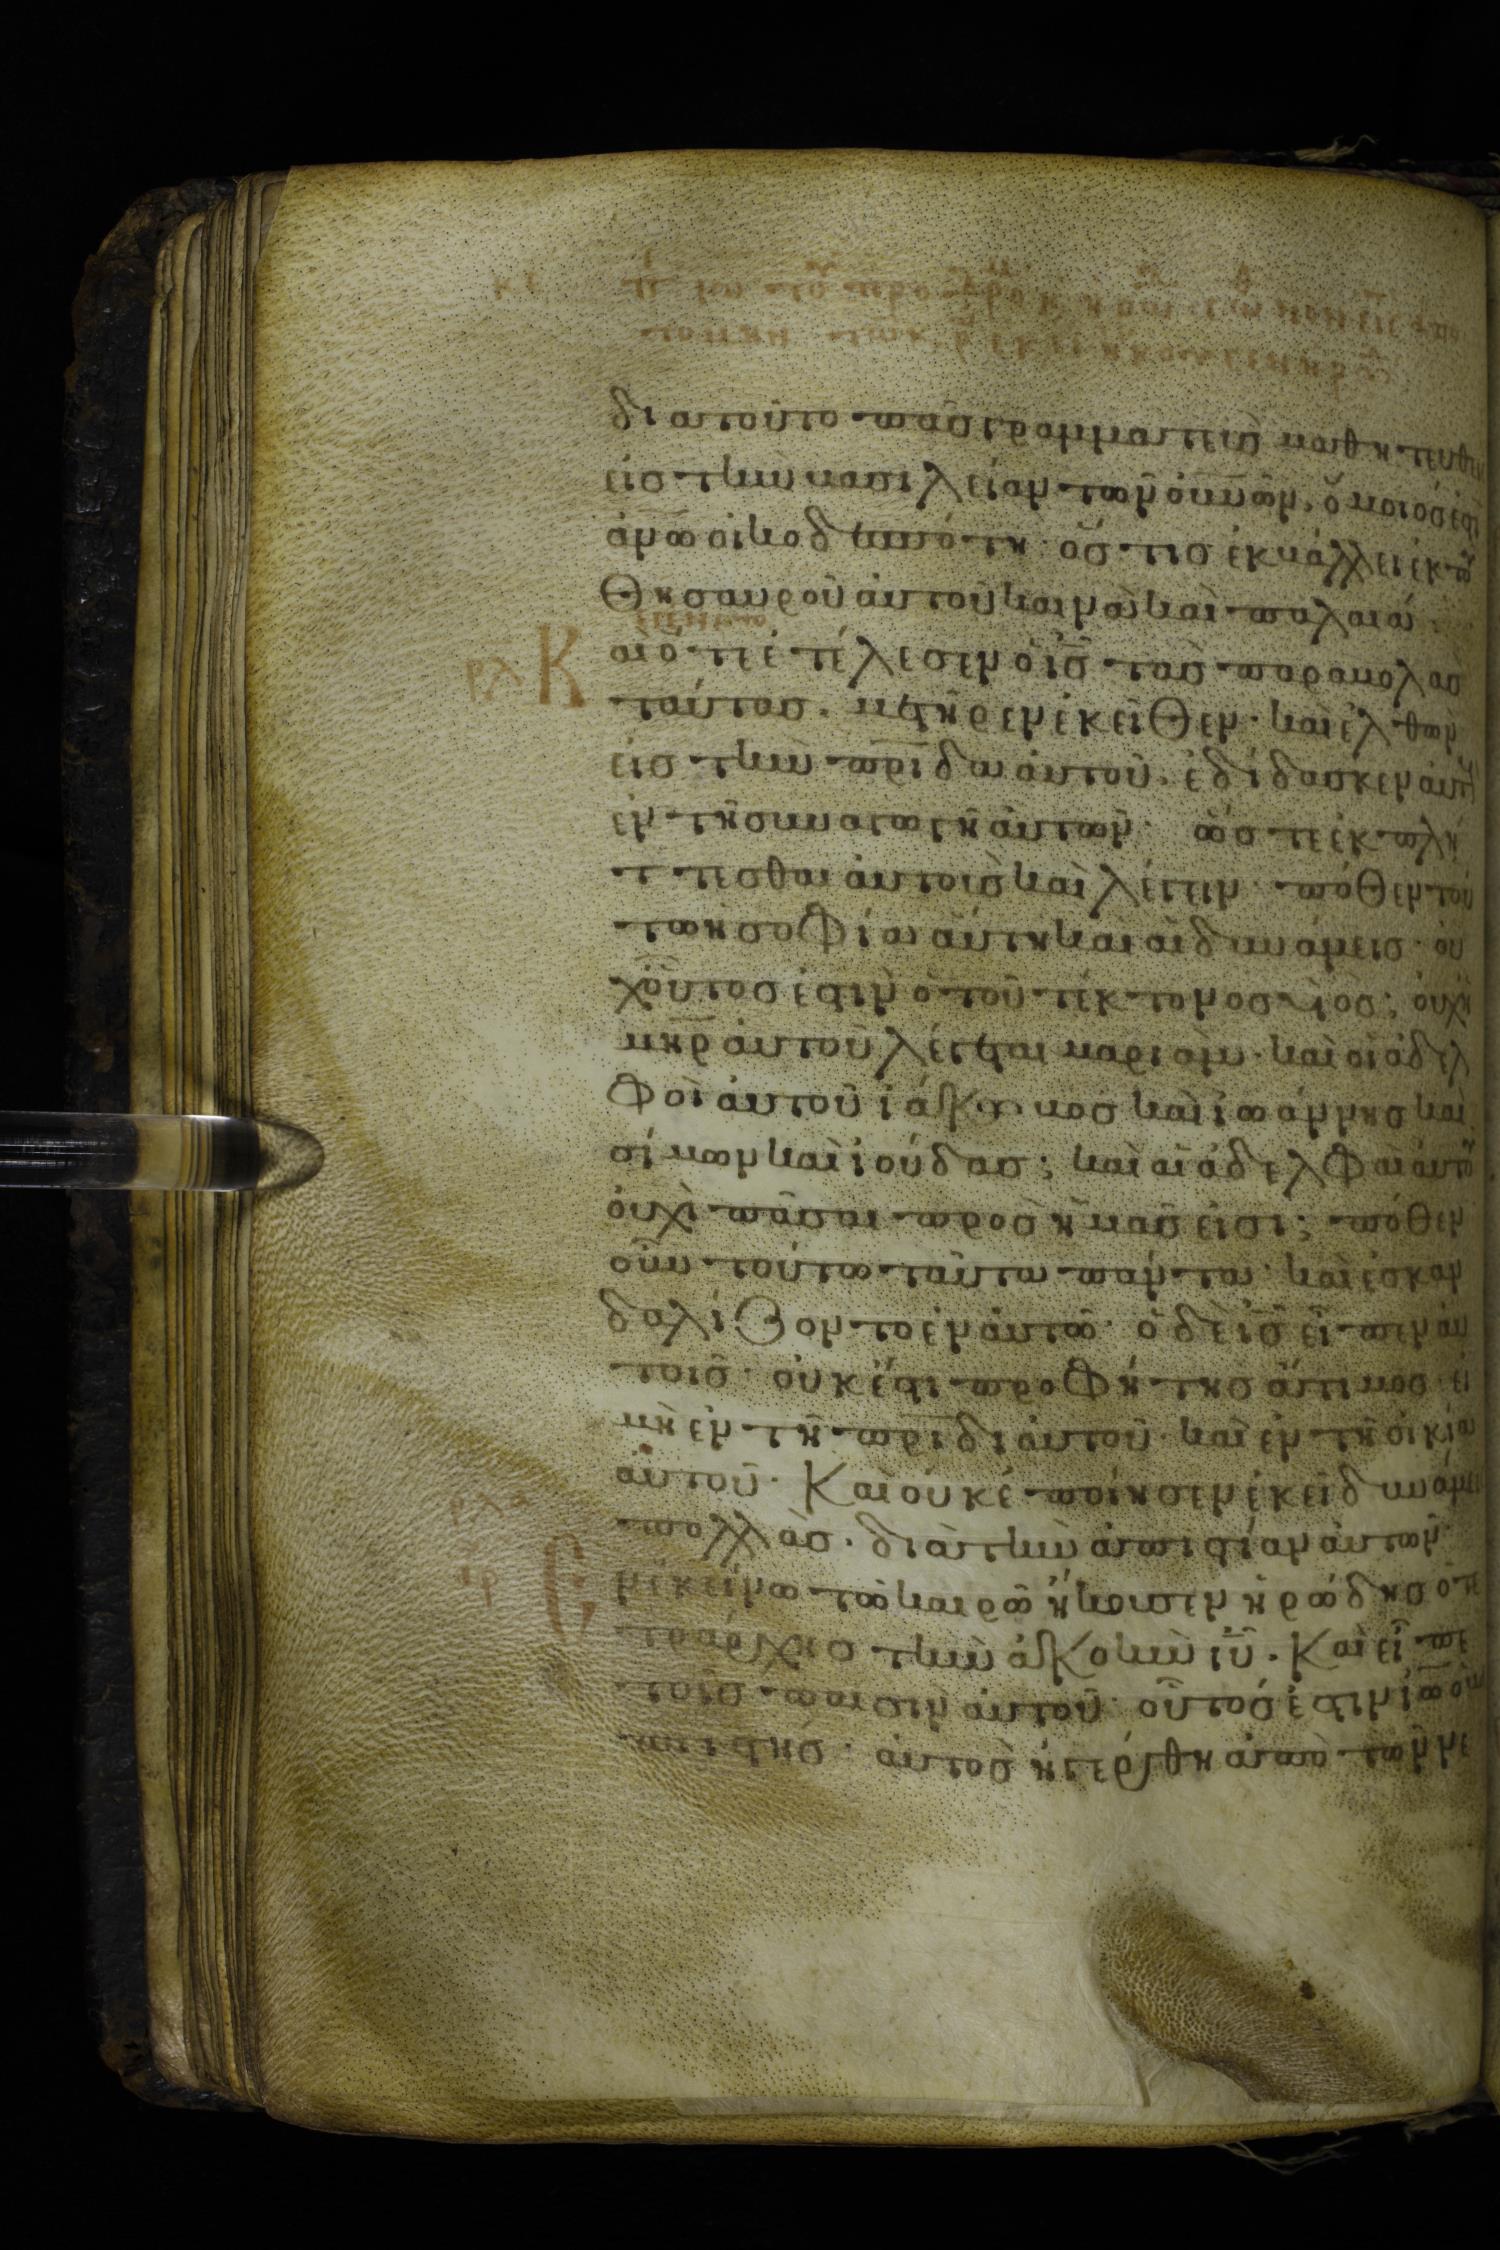 διατοῦτο πᾶσ γραμματεὺσ μαθητευθεὶσ
εἰσ τὴν βασιλείαν τῶν οὐνῶν. ὅμοιόσ ἐστιν
ἀνω οἰκοδεσπότη. ὅστισ ἐκβάλλει ἐκ τοῦ
θησαυροῦ αὐτοῦ καινὰ καὶ παλαιά.
ρλ Καὶ ὅτε ἐτέλεσεν ὁ ισ τὰσ παραβολὰσ
ταύτασ. μετῆρεν ἐκεῖθεν. καὶ ἐλθὼν
εἰσ τὴν πρίδα αὐτοῦ. ἐδίδασκεν αὐτοὺσ
ἐν τῆ συναγωγῆ αὐτῶν. ὥστε ἐκπλή
ττεσθαι αὐτοὺσ καὶ λέγειν. πόθεν τού
τω ἡ σοφία αὕτη καὶ αἱ δυνάμεισ. οὐ
χ οὗτόσ ἐστιν ὁ τοῦ τέκτονοσ ὑιὸσ; οὐχὶ ἡ
μηρ αὐτοῦ λέγεται μαριὰμ. καὶ οἱ ἀδελ
φοὶ αὐτοῦ ἰάκωβοσ καὶ ἰωάννησ καὶ
σίμων καὶ ἰούδασ; καὶ αἱ ἀδελφαὶ αὐτοῦ
οὐχὶ πᾶσαι προσ ἡμᾶσ εἰσι; πόθεν
οὖν τούτω ταῦτα πάντα. καὶ ἐσκαν
δαλίζοντο ἐν αὐτῶ. ὁ δὲ ισ εἶπεν αὐ
τοῖσ. οὐκ ἔστι προφήτησ ἄτιμοσ εἰ
μὴ ἐν τῆ πρίδι αὐτοῦ. καὶ ἐν τῆ οἰκία
αὐτοῦ. Καὶ οὐκ ἐποίησεν ἐκεῖ δυνάμεισ
ρλα πολλὰσ. διὰ τὴν ἀπιστίαν αὐτῶν.
Ἐν ἐκείνω τῶ καιρῶ ἤκουσεν ἡρώδησ ὁ τε
τράρχησ τὴν ἀκοὴν ιυ. Καὶ εἶπε
τοῖσ παισὶν αὐτοῦ. οὗτόσ ἐστιν ἰω ὁ βα
πτιστήσ. αὐτὸσ ἠγέρθη ἀπὸ τῶν νε